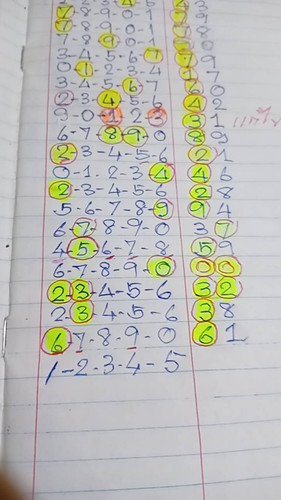 7-8-9-0-1 79
7-8-9-0-1 78
7-8-9-0
3-4-5-6-7 79
0-1-2-3-4 17
3-4-5-6-7 60
2-3-4-5-6 42
9-0-1-2-3 31
6-7-8-9-0
2-3-4-5-6 21
0-1-2-3-4 46
2-3-4-5-6 28
5-6-7-8-9 94
6-7-8-9-0 37
4-5-6-7-8 59
6-7-8-9-0 00
2-3-4-5-6 32
2-3-4-5-6 38
6-7-8-9-0 61
1-2-3-4-5